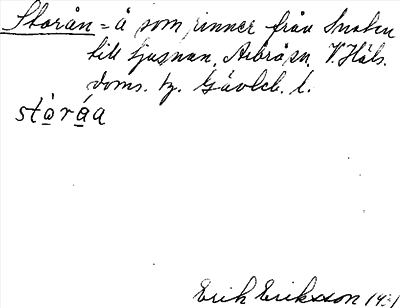 Storån = å som rinner från
till Ljusnan, Arbrå sn. V. Häls.
doms. tg. Gävleb. l.
stòráa
Erik Eriksson 1931